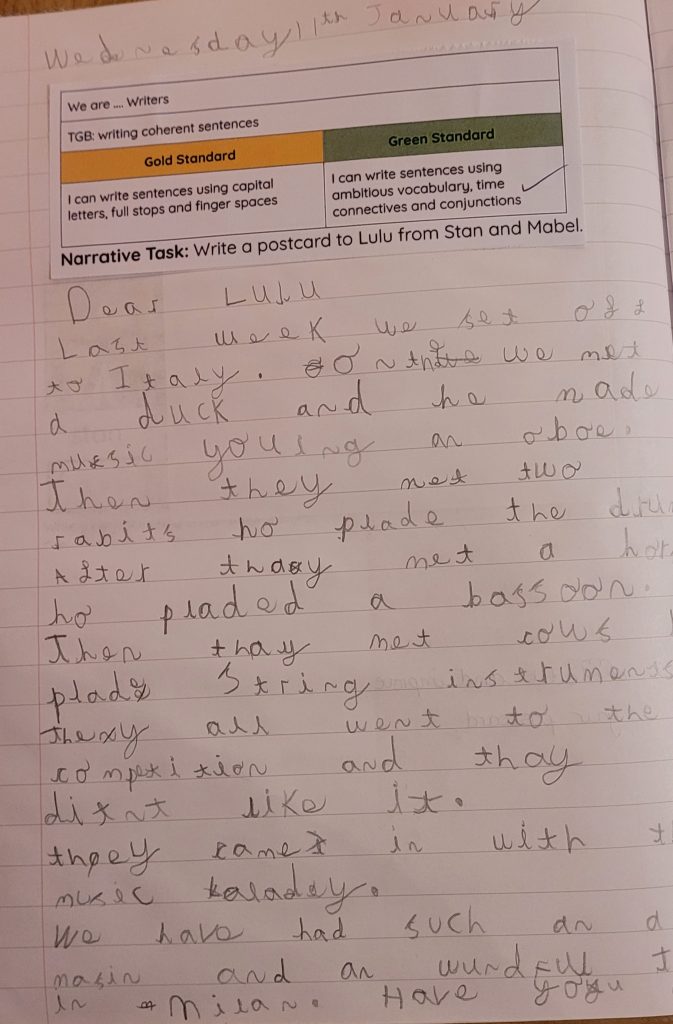 Wednesday 11th January
We are .... Writers
TGB: writing coherent sentences
Gold Standard
Green Standard
I can write sentences using capital
letters, full stops and finger spaces
I can write sentences using
ambitious vocabulary, time
connectives and conjunctions
Narrative Task: Write a postcard to Lulu from Stan and Mabel.
Dear Lulu
Last week we set off
to Italy. On the we met
a duck and he made
music yousing an oboe.
Then they met two
rabits ho plade the dru
After thay met a hor
ho pladed a bassoon.
Then thay met cows
plade String instruments
they all went to the
competition and thay
ditnt like it.
they came in with t
music
We have had such an a
masin and an wundfull t
in Milan. Have you